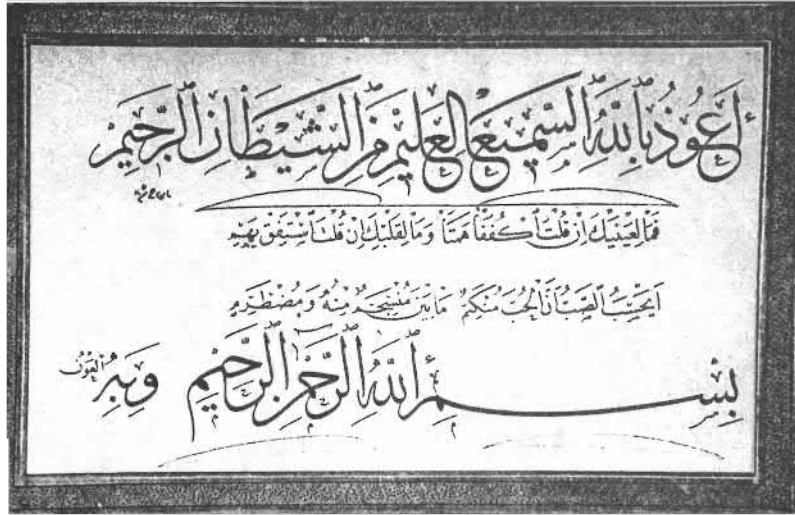 أَعُوذُ بِاللَّهِ السَّمِيعِ الْعَلِيمِ مِنَ الشَّيْطَانِ الرَّجِيمِ
فَمَا لِعَيْنَيْكَ اِنْ قُلْتَ اكْفُفَا هَمَتَا وَمَا لِقَلْبِكَ اِنْ قُلْتَ اسْتَفِقْ يَهِمِ
اَيَحْسَبُ الصَّبُّ اَنَّ الْحُبَّ مُنْكَتِمٌ مَا بَيْنَ مُنْسَجِمٍ مِنْهُ وَمُضْطَرِمِ
بِسْمِ اللَّهِ الرَّحْمٰنِ الرَّحِيمِ وَبِهِ الْعَوْنُ